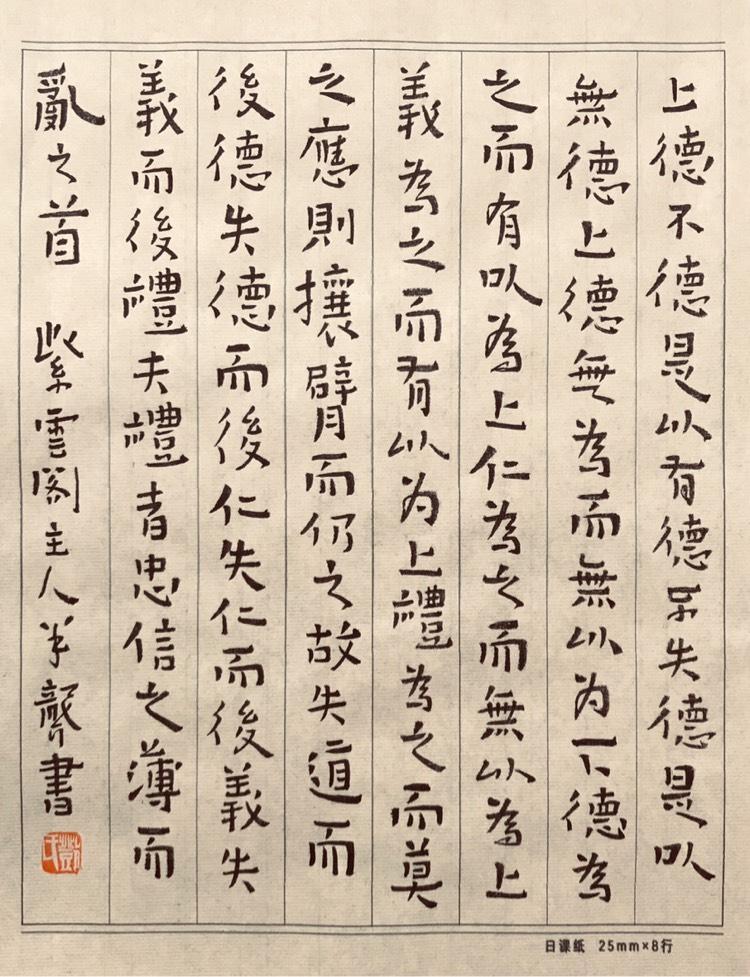 上德不德是以有德不失德是以
無德上德無為而無以为下德為
之而有以為上仁為之而無以為上
義為之而有以为上禮為之而莫
之應則攘臂而仍之故失道而
後德失德而後仁失仁而後義失
義而後禮夫禮者忠信之薄而
亂之首 紫雲閣主人半聾書
日课纸 25mm×8行